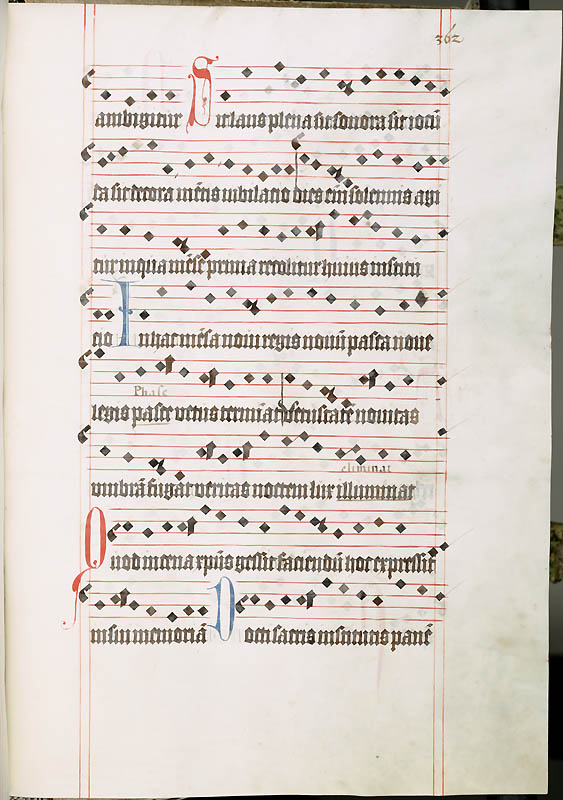 362
ambigitur Sit laus plena sit sonora sit iocū
da sit decora mētis iubilatio dies eīm solemnis agi
tur in qua mēse prima recolitur huius institu
cio In hac mēsa noui regis nouū pasca noue
Phase
legis pasce vetus terminat vetustatē nouitas
eliminat
vmbrā fugat veritas noctem lux illuminat
Quod in cena xp̄us gessit faciendū hoc expressit
in sui memoriā Docti sacris institutis panē